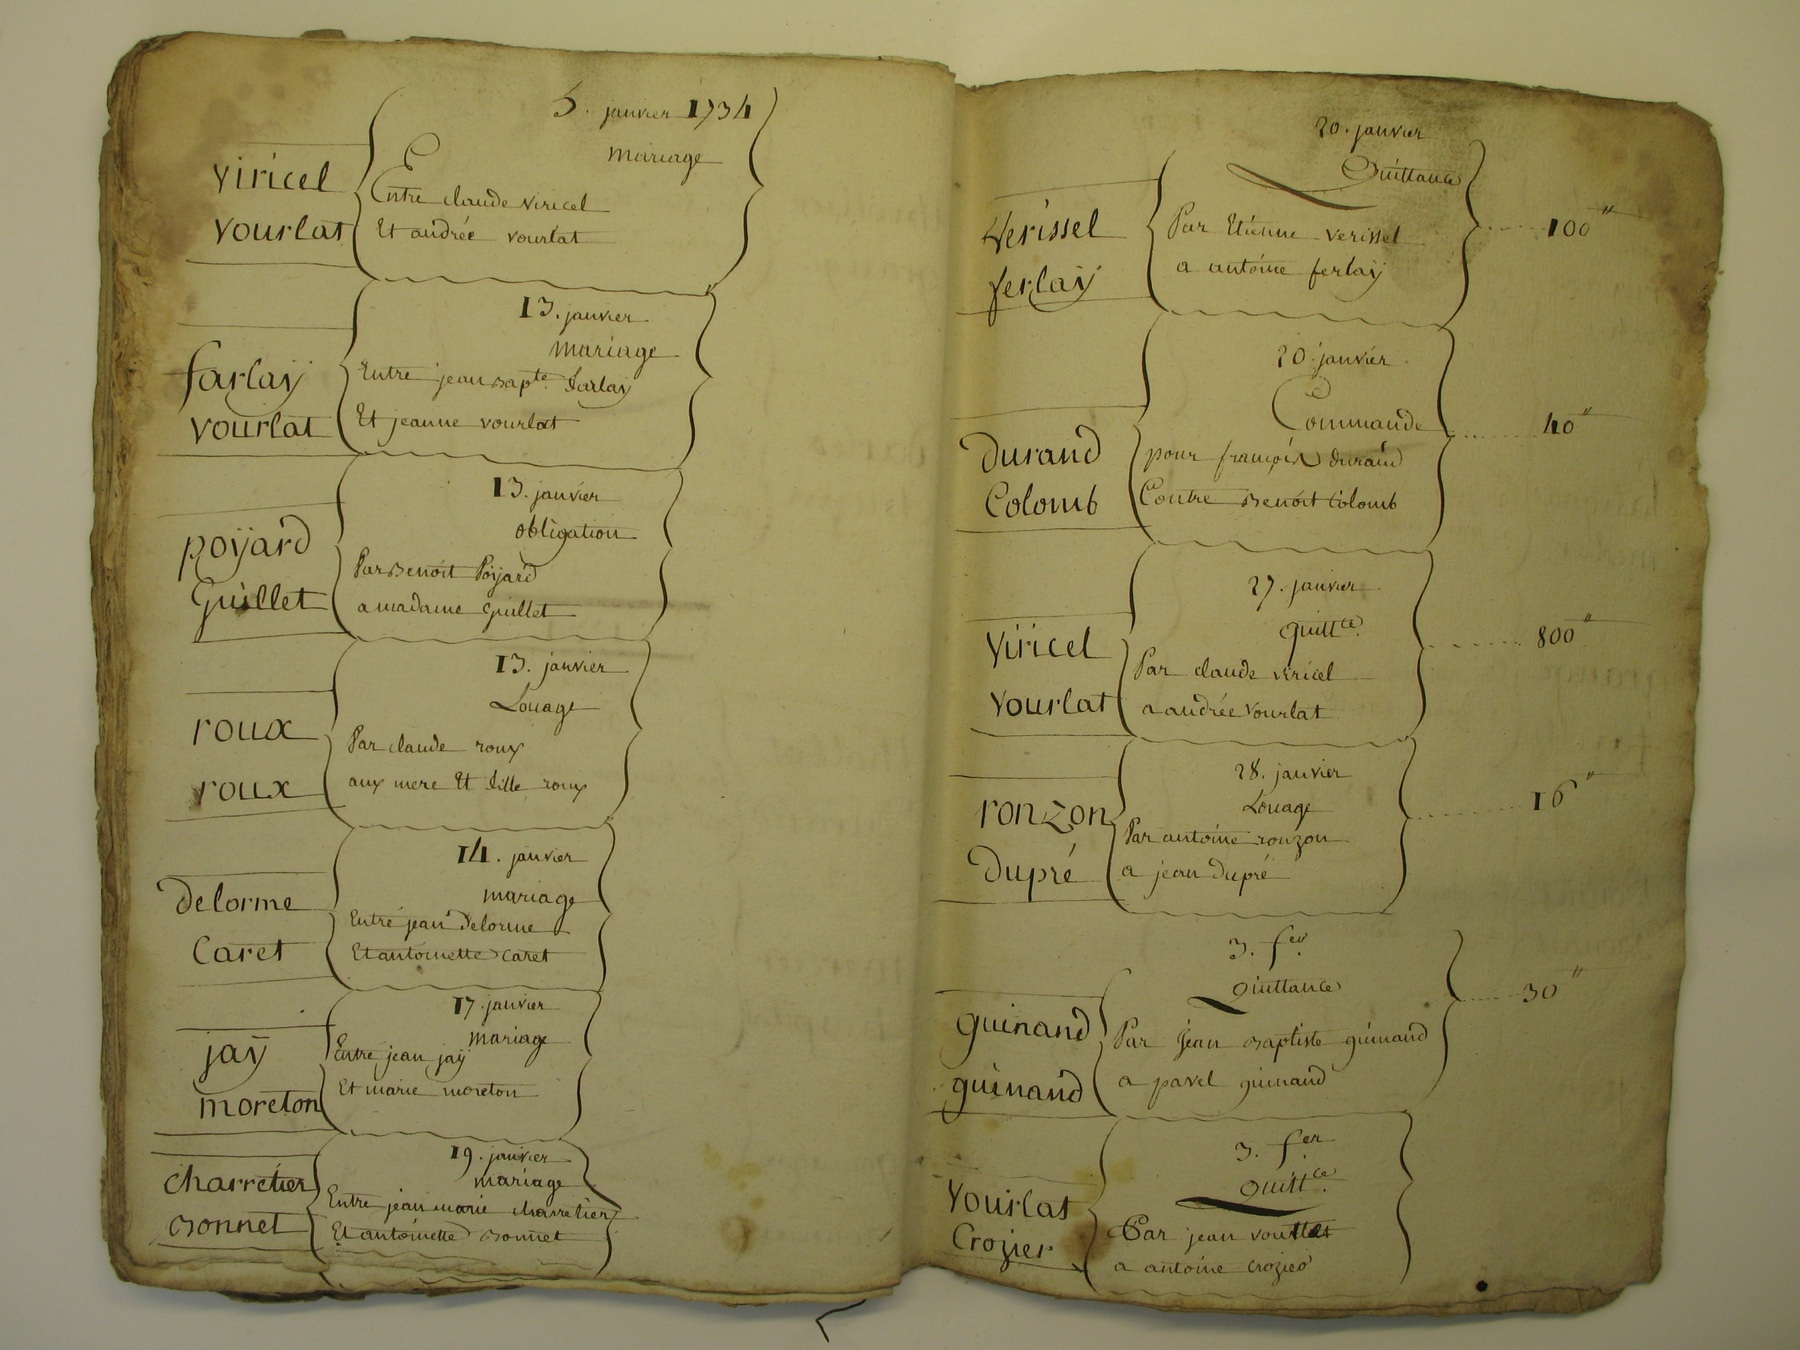 5. janvier 1734
mariage
viricel
Entre claude viricel
vourlat
Et andrée vourlat
13. janvier
mariage
farlaÿ
Entre jean Bapte. farlaÿ
vourlat
Et jeanne vourlat
13. janvier
obligation
poÿard
Par Benoit Poÿard
Guillet
a madame Guillet
13. janvier
Louage
roux
Par claude roux
roux
aux mere Et fille roux
14. janvier
mariage
Delorme
Entre jean Delorme
Caret
Et antoinette Caret
17. janvier
mariage
jaÿ
Entre jean jaÿ
moreton
Et marie moreton
19. janvier
mariage
charretier
Entre jean marie charretier
Bonnet
Et antoinette Bonnet
20. janvier
Quittance
Verissel
Par Etienne verissel
100"
ferlaÿ
a antoine ferlaÿ
20. janvier
Commande
40"
Durand
pour françois durand
Colomb
Contre Benoit Colomb
27. janvier
quittce.
800"
Viricel
Par claude viricel
Vourlat
a andrée vourlat
28. janvier
Louage
16"
ronzon
Par antoine ronzon
Dupré
a jean dupré
3. fer
quittance
30"
guinand
Par Jean Baptiste guinand
guinand
a pavel guinand
3. fer
quittce.
Vourlat
Par jean
Crozier
a antoine crozier